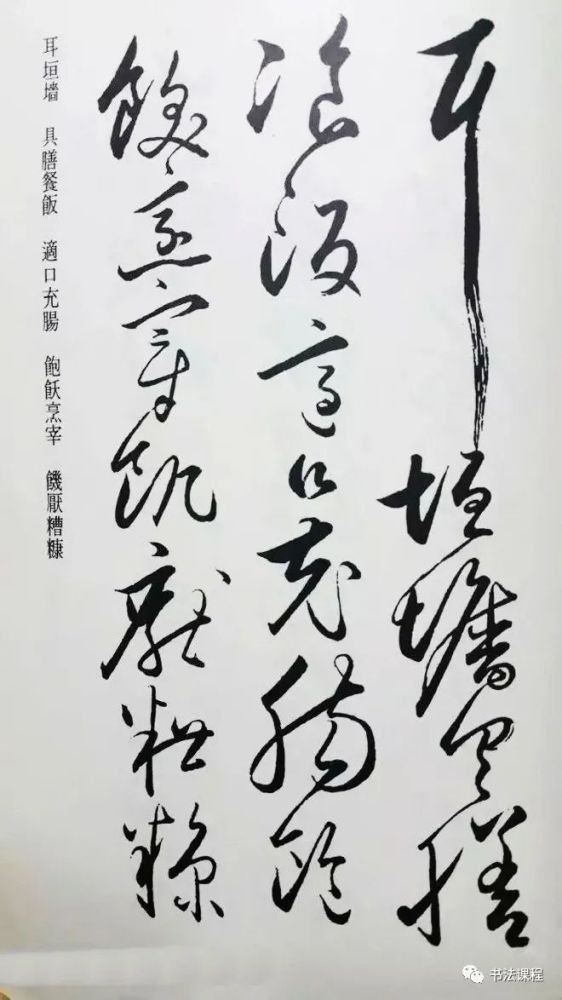 耳垣墻具膳
飡飯適口充腸飽
飫烹宰飢厭糟糠
耳垣墻 具膳餐飯 適口充腸 飽飫烹宰 饑厭糟糠
书法课程